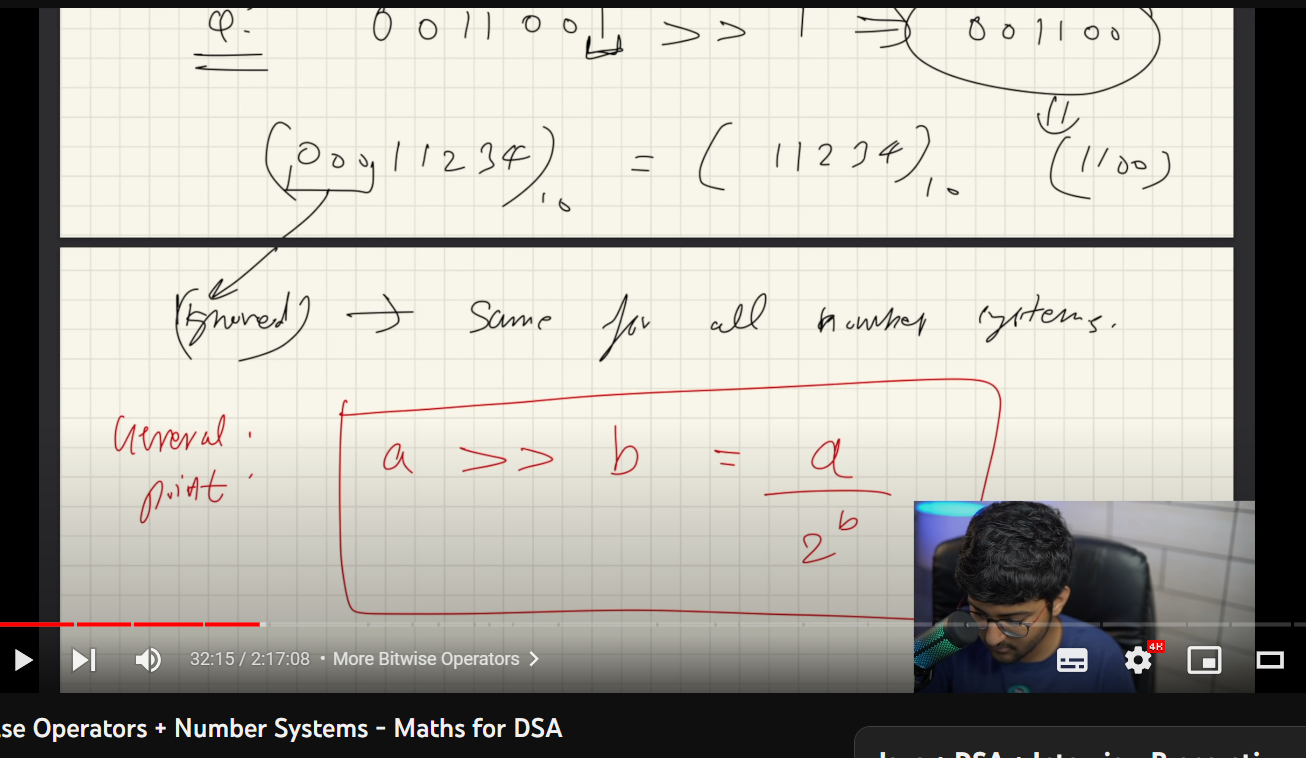 Q: 0011001 >> 1 => 001100
(00011234)10 = (11234)10 (1100)
(Ignored) → Same for all number systems.
General point: a >> b = a
2^b
32:15 / 2:17:08 • More Bitwise Operators >
4K
se Operators + Number Systems - Maths for DSA